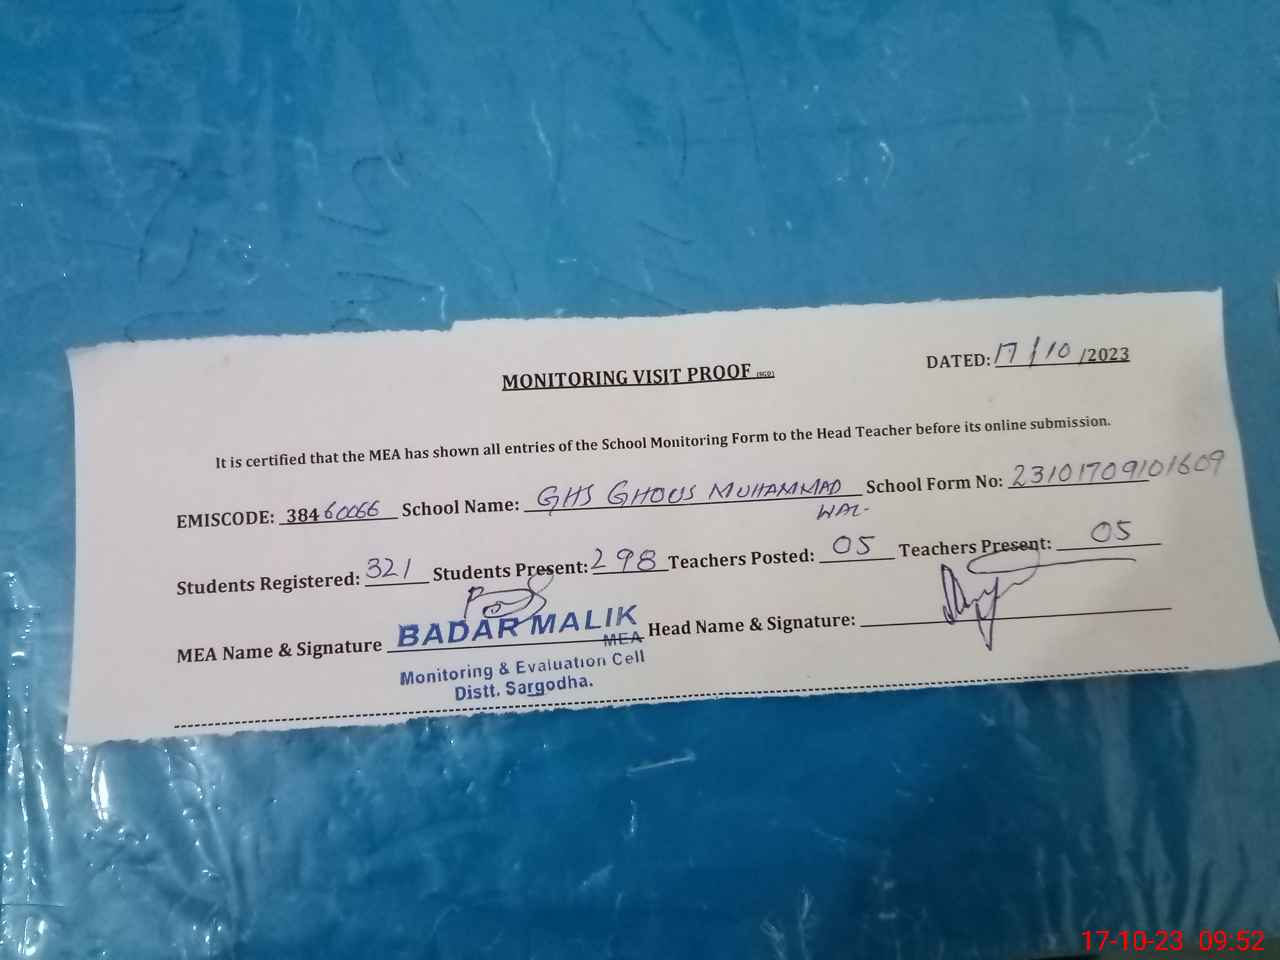 DATED: 17/10/2023
MONITORING VISIT PROOF (SGD)
It is certified that the MEA has shown all entries of the School Monitoring Form to the Head Teacher before its online submission.
EMISCODE: 38460066 School Name: GHS GHOUS MUHAMMAD School Form No: 23101709101609
WAL-
Students Registered: 321 Students Present: 298 Teachers Posted: 05 Teachers Present: 05
MEA Name & Signature BADAR MALIK Head Name & Signature:
MEA
Monitoring & Evaluation Cell
Distt. Sargodha.
17-10-23 09:52